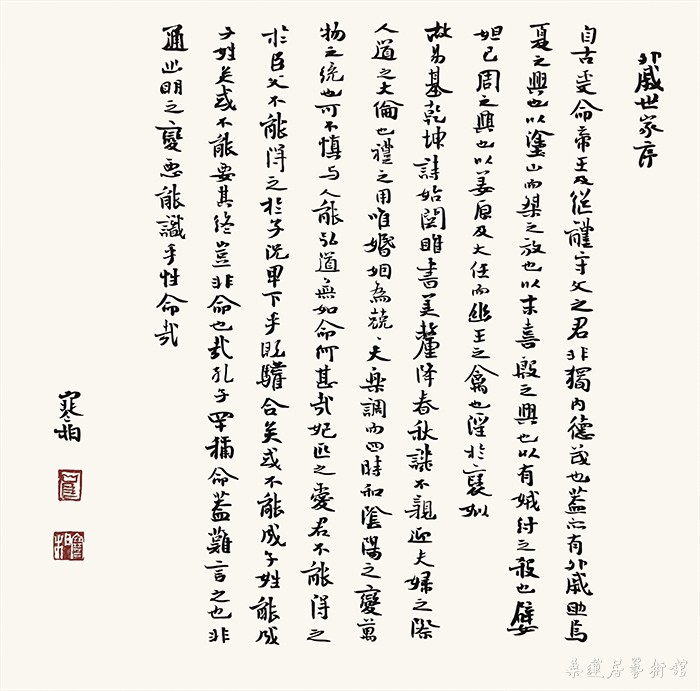 外戚世家序
自古受命帝王及繼體守文之君非獨內德茂也蓋亦有外戚助焉
夏之興也以塗山而桀之放也以末喜殷之興也以有娀紂之殺也嬖
妲己周之興也以姜原及大任而幽王之禽也淫於襃姒
故易基乾坤詩始關雎書美釐降春秋譏不親迎夫婦之際
人道之大倫也禮之用唯婚姻為兢、夫樂調而四時和陰陽之變萬
物之統也可不慎与人能弘道無如命何甚哉妃匹之愛君不能得之
於臣父不能得之於子況卑下乎既驩合矣或不能成子姓能成
子姓矣或不能要其終豈非命也哉孔子罕稱命蓋難言之也非
通幽明之變惡能識乎性命哉
寒柏
桑蓮居藝術館